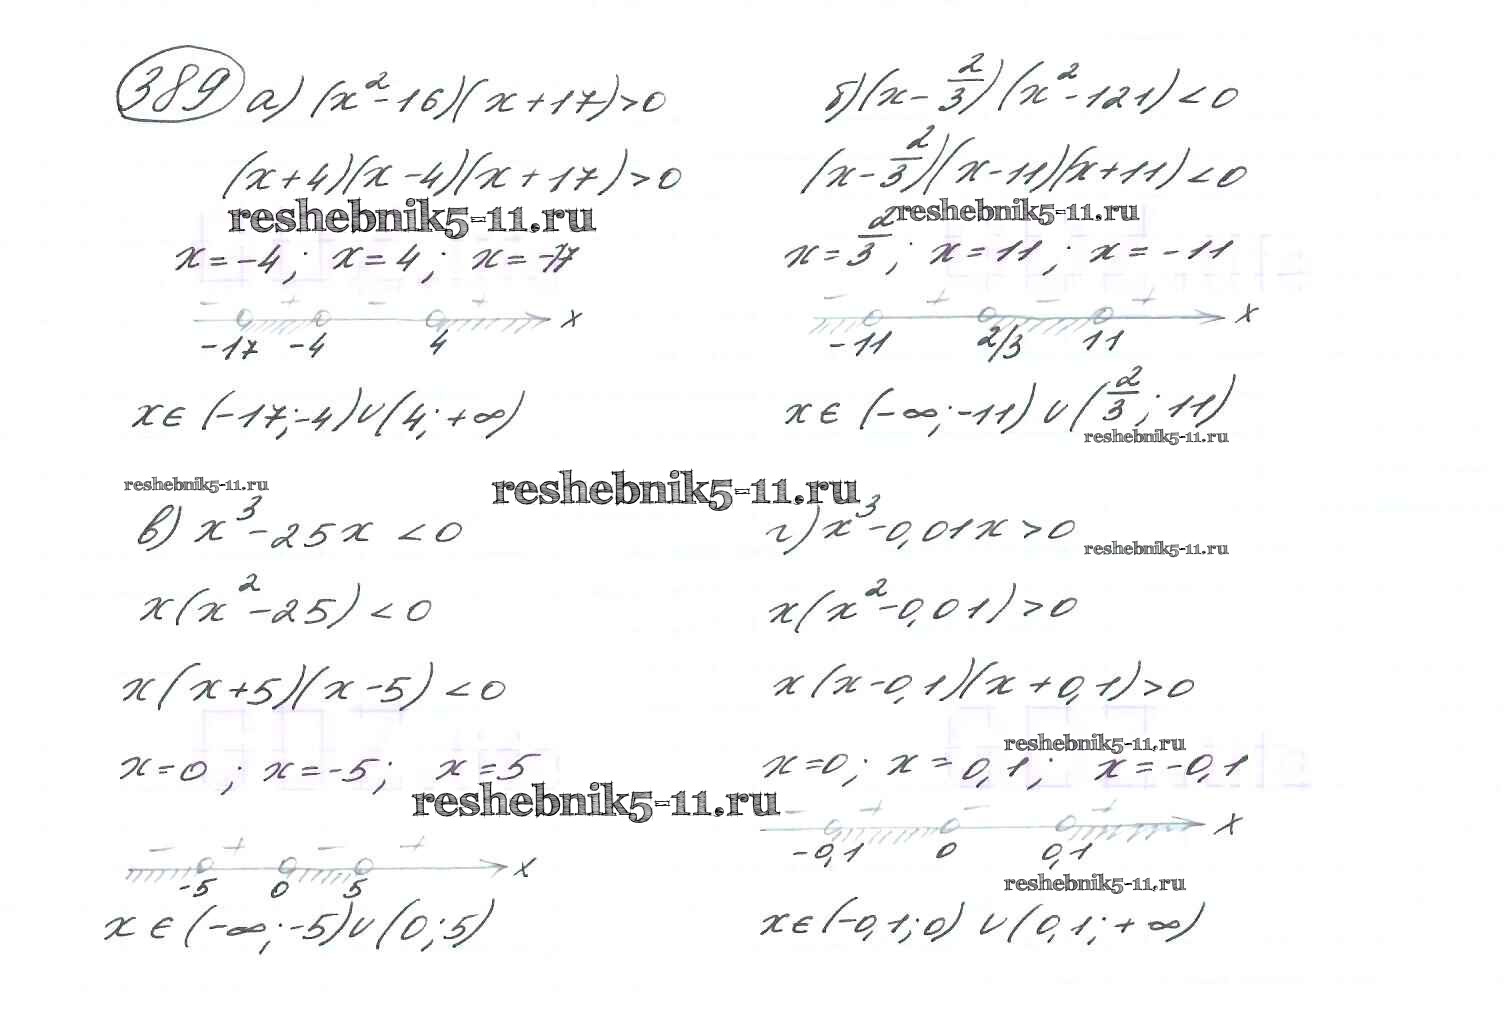 389 а) (x²-16)(x+17)>0
(x+4)(x-4)(x+17)>0
reshebnik5-11.ru
x=-4; x=4; x=-17
- + - +
-17 -4 4 x
x∈(-17;-4)∪(4;+∞)
б) (x-2/3)(x²-121)<0
(x-2/3)(x-11)(x+11)<0
reshebnik5-11.ru
x=2/3; x=11; x=-11
- + - +
-11 2/3 11 x
x∈(-∞;-11)∪(2/3;11)
reshebnik5-11.ru
reshebnik5-11.ru
reshebnik5-11.ru
в) x³-25x<0
x(x²-25)<0
x(x+5)(x-5)<0
x=0; x=-5; x=5
reshebnik5-11.ru
- + - +
-5 0 5 x
x∈(-∞;-5)∪(0;5)
г) x³-0,01x>0
reshebnik5-11.ru
x(x²-0,01)>0
x(x-0,1)(x+0,1)>0
reshebnik5-11.ru
x=0; x=0,1; x=-0,1
- + - +
-0,1 0 0,1 x
reshebnik5-11.ru
x∈(-0,1;0)∪(0,1;+∞)